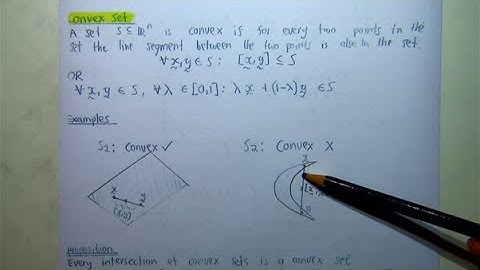 Convex Set
A set S ⊆ ℝⁿ is convex if for every two points in the
set the line segment between the two points is also in the set.
∀ x, y ∈ S : [x,y] ⊆ S
OR
∀ x, y ∈ S, ∀ λ ∈ [0,1]: λ x + (1-λ) y ∈ S
Examples
S1: Convex ✓
S2: Convex X
x
y
[x,y]
x
proposition
Every intersection of convex sets is a convex set